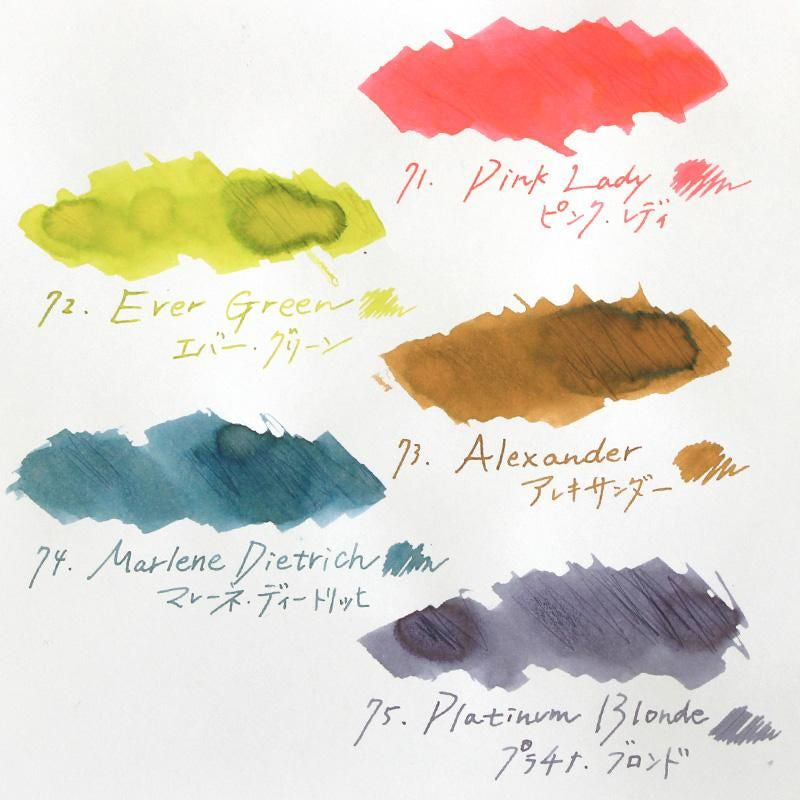 71. Pink Lady
ピンク・レディ
72. Ever Green
エバー・グリーン
73. Alexander
アレキサンダー
74. Marlene Dietrich
マレーネ・ディートリッヒ
75. Platinum Blonde
プラチナ・ブロンド